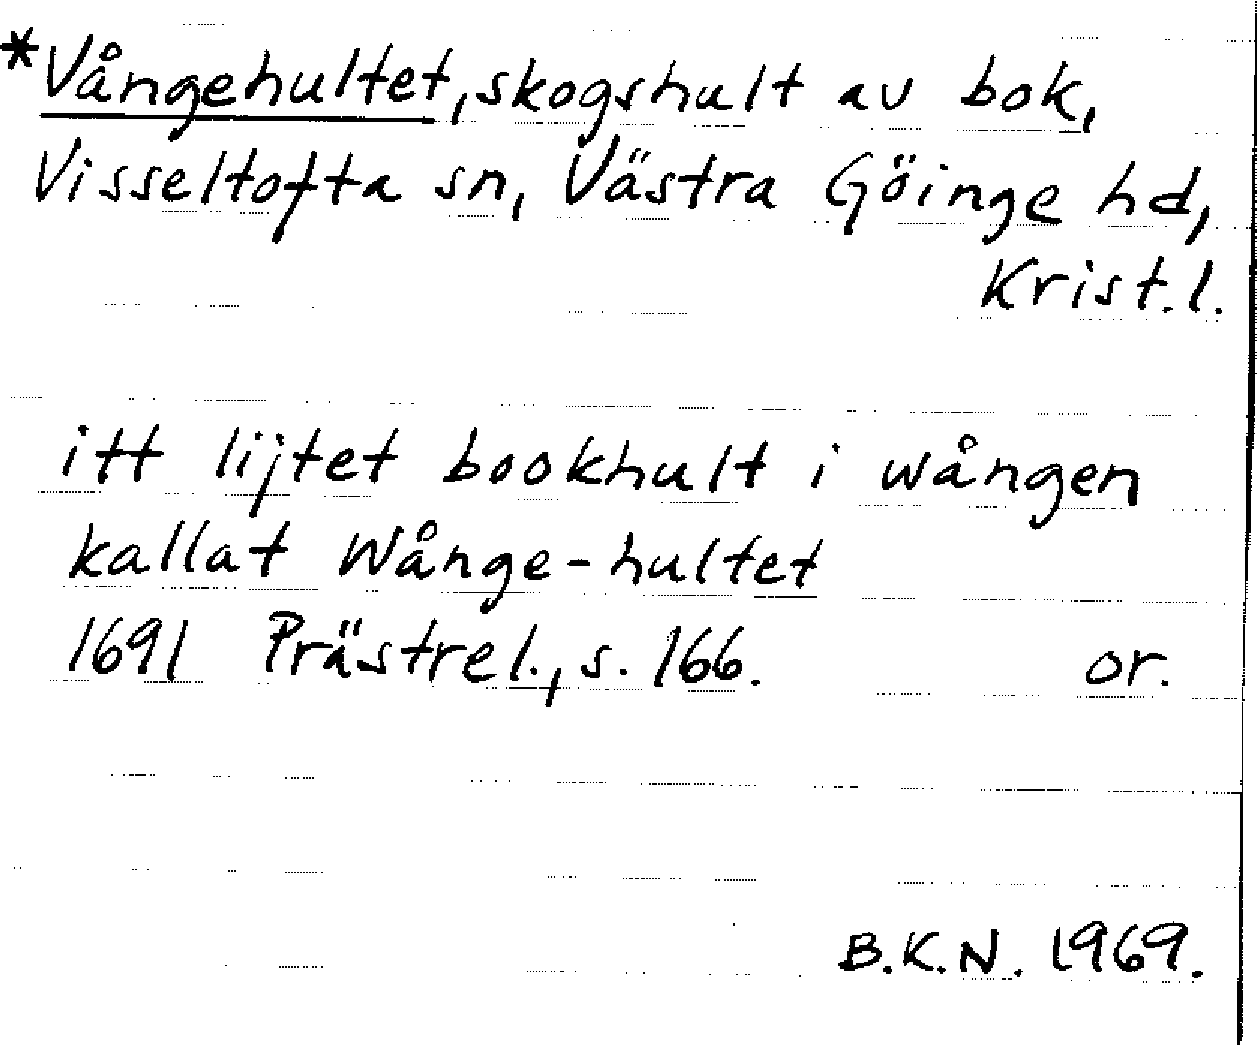 *Vångehultet, skogshult av bok,
Visseltofta sn, Västra Göinge hd,
Krist.l.
itt lijtet bookhult i wången
kallat Wånge-hultet
1691 Prästrel., s. 166. or.
B.K.N. 1969.